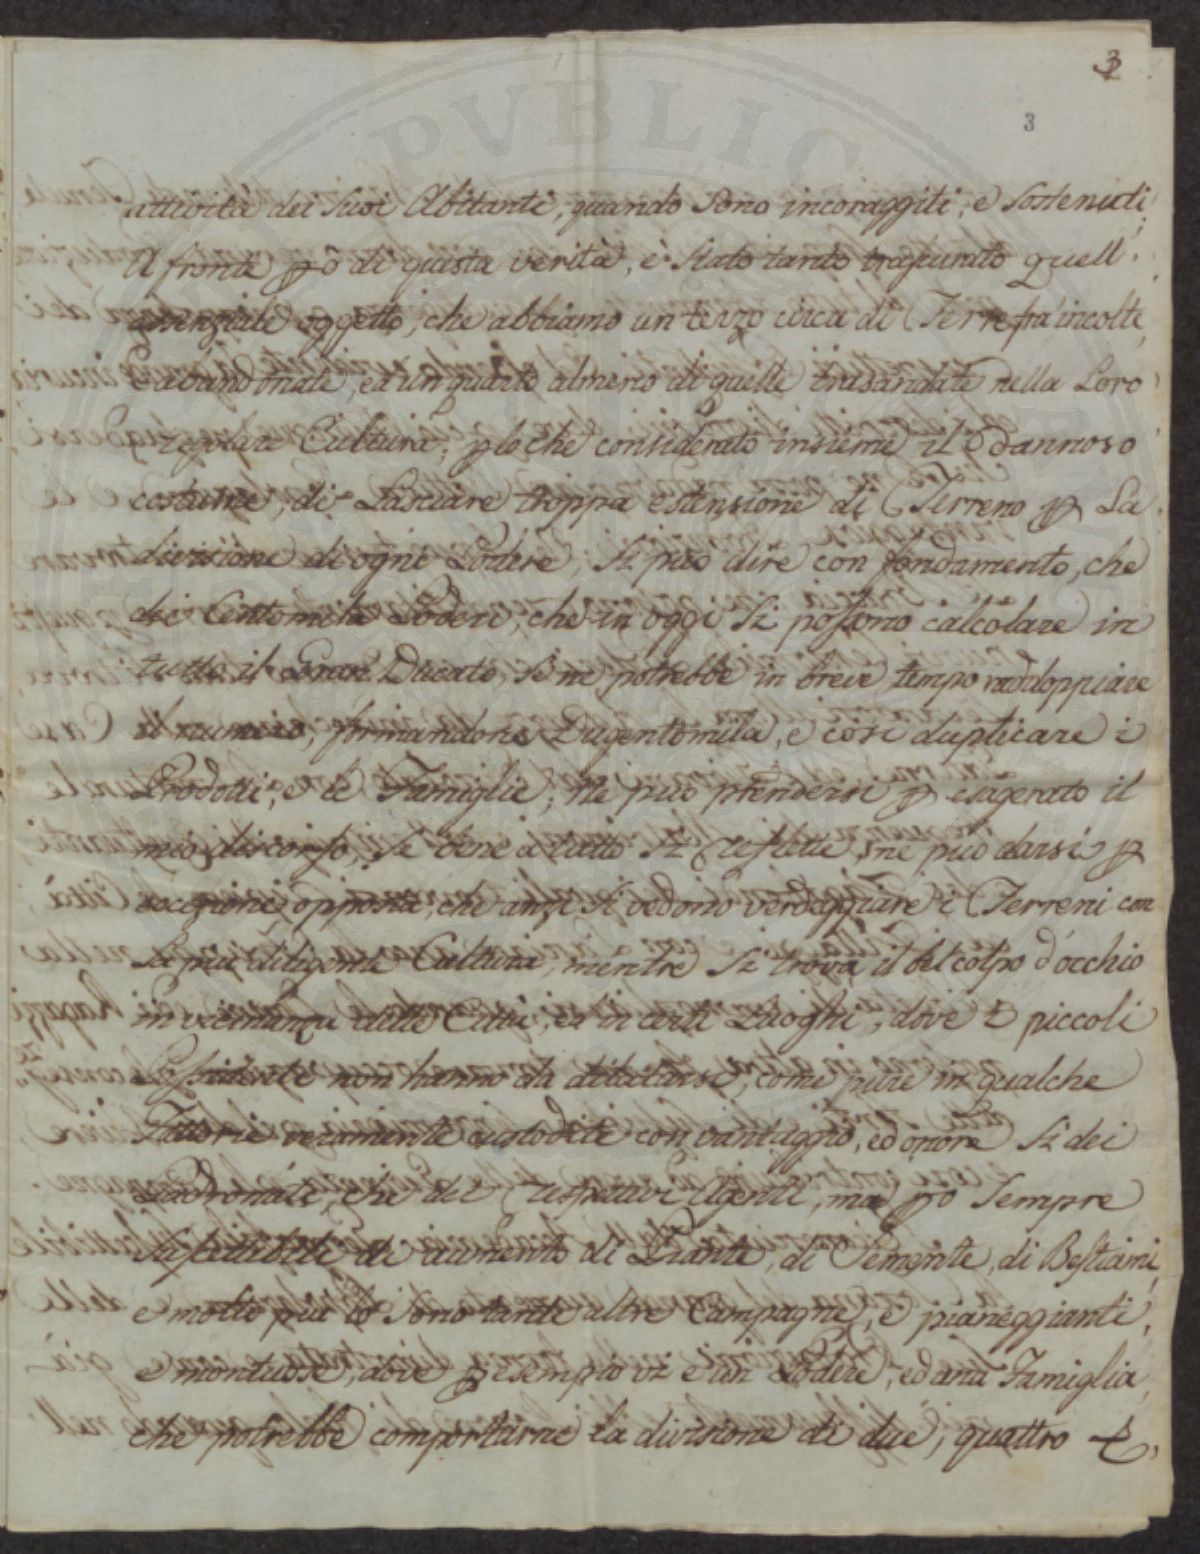 3
3
attività dei suoi Abitanti, quando sono incoraggiti, e sostenuti;
A fronte ꝑò di questa verità, è stato tanto trascurato quell'
essenziale oggetto, che abbiamo un terzo circa di Terre frà incolte,
e abbandonate, ed un quarto almeno di quelle trasandate nella Loro
regolare Cultura; ꝑlochè considerato insieme il dannoso
costume, di Lasciare troppa estensione di Terreno ꝑ La
divisione di ogni Podere, si può dire con fondamento, che
dei Centomila Poderi, che in oggi si possono calcolare in
tutto il Gran Ducato, se ne potrebbe in breve tempo raddoppiare
il numero, formandone Dugentomila, e così duplicare i
Prodotti, e le Famiglie; Ne può prendersi ꝑ esagerato il
mio discorso, se bene a tutto si reflette, nè può darsi ꝑ
eccezione opposta, che anzi si vedono verdeggiare i Terreni con
la più diligente Cultura, mentre si trova il bel colpo d'occhio
in vicinanza delle Città, ed in certi Luoghi, dove i piccoli
Possidenti non hanno da dilatarsi, come pure in qualche
Fattoria veramente custodita con vantaggio, ed onore sì dei
Padronati, che dei respettivi Agenti, ma ꝑò sempre
suscettibili di aumento di Piante, di Semente, di Bestiami,
e molto più lo sono tante altre Campagne, e pianeggianti,
e montuose, dove ꝑ esempio vi è un Podere, ed una Famiglia,
che potrebbe comportarne la divisione di due, quattro
PVBLIC